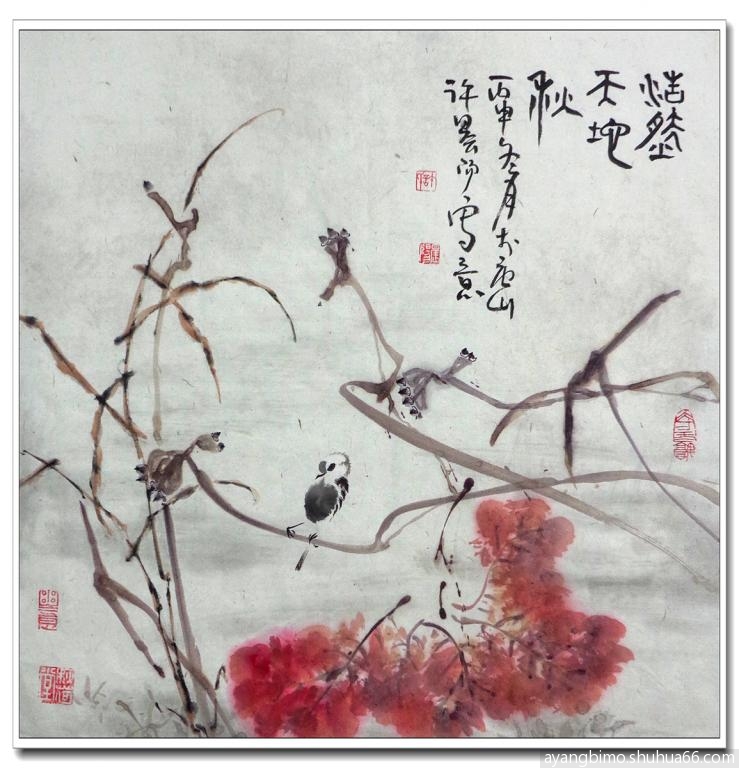 浩然
天地
秋
丙申冬月於唐山
许阳写意
ayangbimo.shuhua66.com